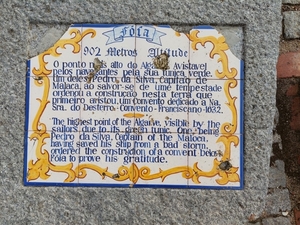 Fóia
902 Metros Altitude
O ponto mais alto do Algarve. Avistavel
pelos navegantes pela sua tunica verde.
Um deles, Pedro da Silva, Capitão de
Malaca, ao salvar-se de ume tempestade
ordenou a construção nesta terra que
primeiro avistou, um Convento dedicado a Na.
Sra. do Desterro. Convento Franciscano-1632.
The highest point of the Algarve, visible by the
sailors due to its green tunic. One being
Pedro da Silva, Captain of the Malaca,
having saved his ship from a bad storm,
ordered the construction of a convent below
Fóia to prove his gratitude.